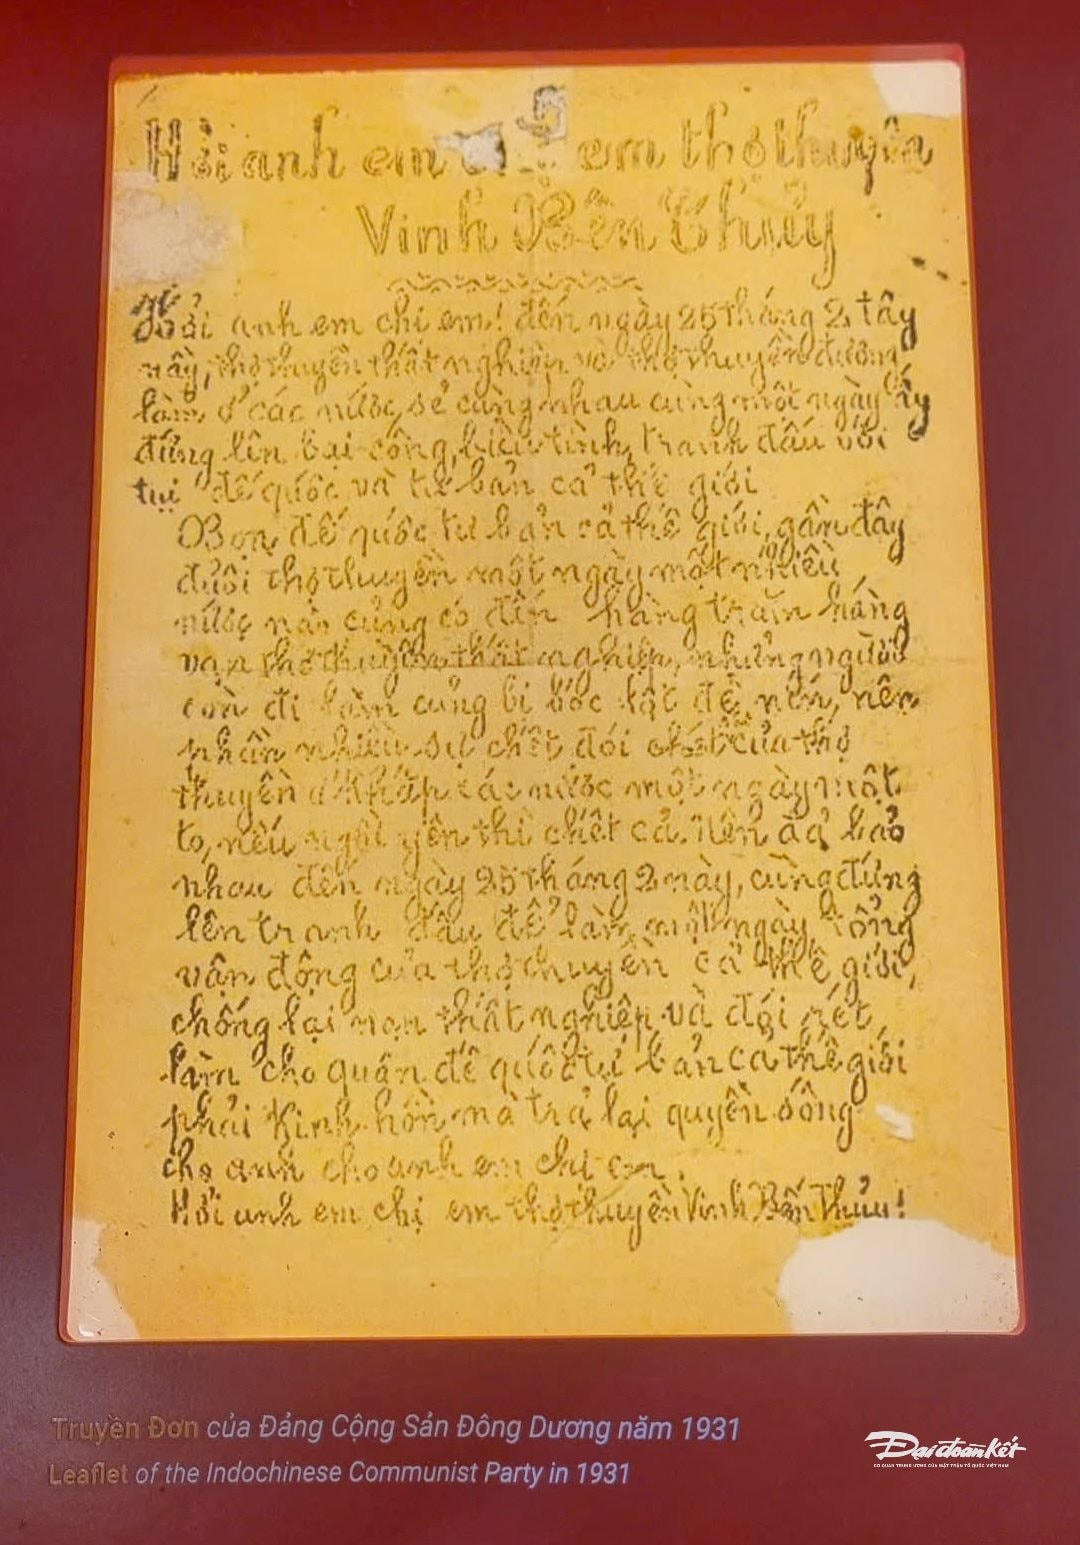 Hỏi anh em chị em thợ thuyền
Vinh Bến Thủy
Hỏi anh em chị em! đến ngày 25 tháng 2 tây
nầy, thợ thuyền thất nghiệp và thợ thuyền đương
làm ở các nước, sẻ cùng nhau cùng một ngày ấy
đứng lên bại công, biểu tình, tranh đấu với
tụi đế quốc và tư bản cả thế giới
Bọn đế quốc tư bản cả thế giới, gần đây
đuổi thợ thuyền một ngày một nhiều
nước nào củng có đến hàng trăm hàng
vạn thợ thuyền thất nghiệp, nhửng người
còn đi làm củng bị bóc lột đè nén, nên
phần nhiều sự chết đói của thợ
thuyền ở khắp các nước một ngày một
to, nếu ngồi yên thì chết cả. Nên đả bảo
nhau đến ngày 25 tháng 2 này, cùng đứng
lên tranh đấu để làm một ngày tổng
vận động của thợ thuyền cả thế giới,
chống lại nạn thất nghiệp và đói rét
làm cho quân đế quốc tư bản cả thế giới
phải kinh hồn mà trả lại quyền sống
cho anh cho anh em chị em.
Hỏi anh em chị em thợ thuyền Vinh Bến Thủy!
Truyền Đơn của Đảng Cộng Sản Đông Dương năm 1931
Leaflet of the Indochinese Communist Party in 1931
Đại đoàn kết
CƠ QUAN TRUNG ƯƠNG CỦA MẶT TRẬN TỔ QUỐC VIỆT NAM